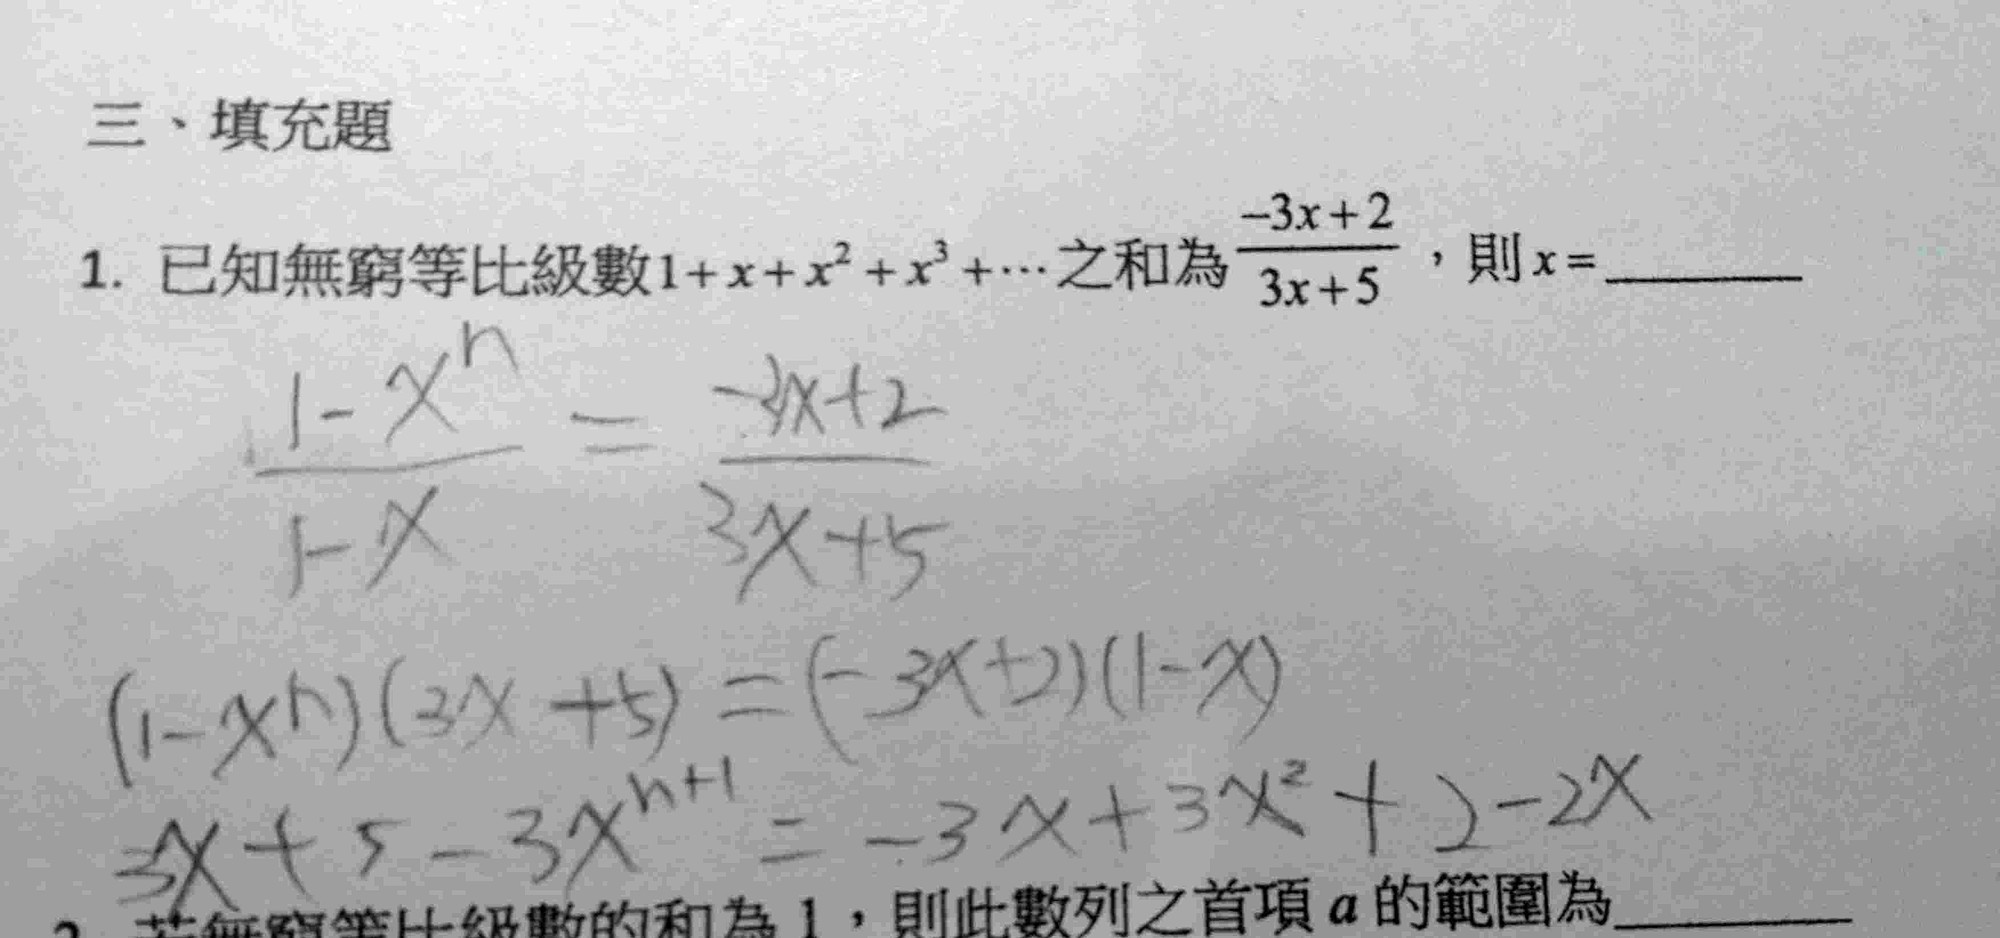 三、填充題
1. 已知無窮等比級數1+x+x²+x³+⋯之和為 (-3x+2)/(3x+5),則x=________
(1-xⁿ)/(1-x) = (-3x+2)/(3x+5)
(1-xⁿ)(3x+5)=(-3x+2)(1-x)
3x+5-3xⁿ⁺¹=-3x+3x²+2-2x
2. 若無窮等比級數的和為1,則此數列之首項a的範圍為________